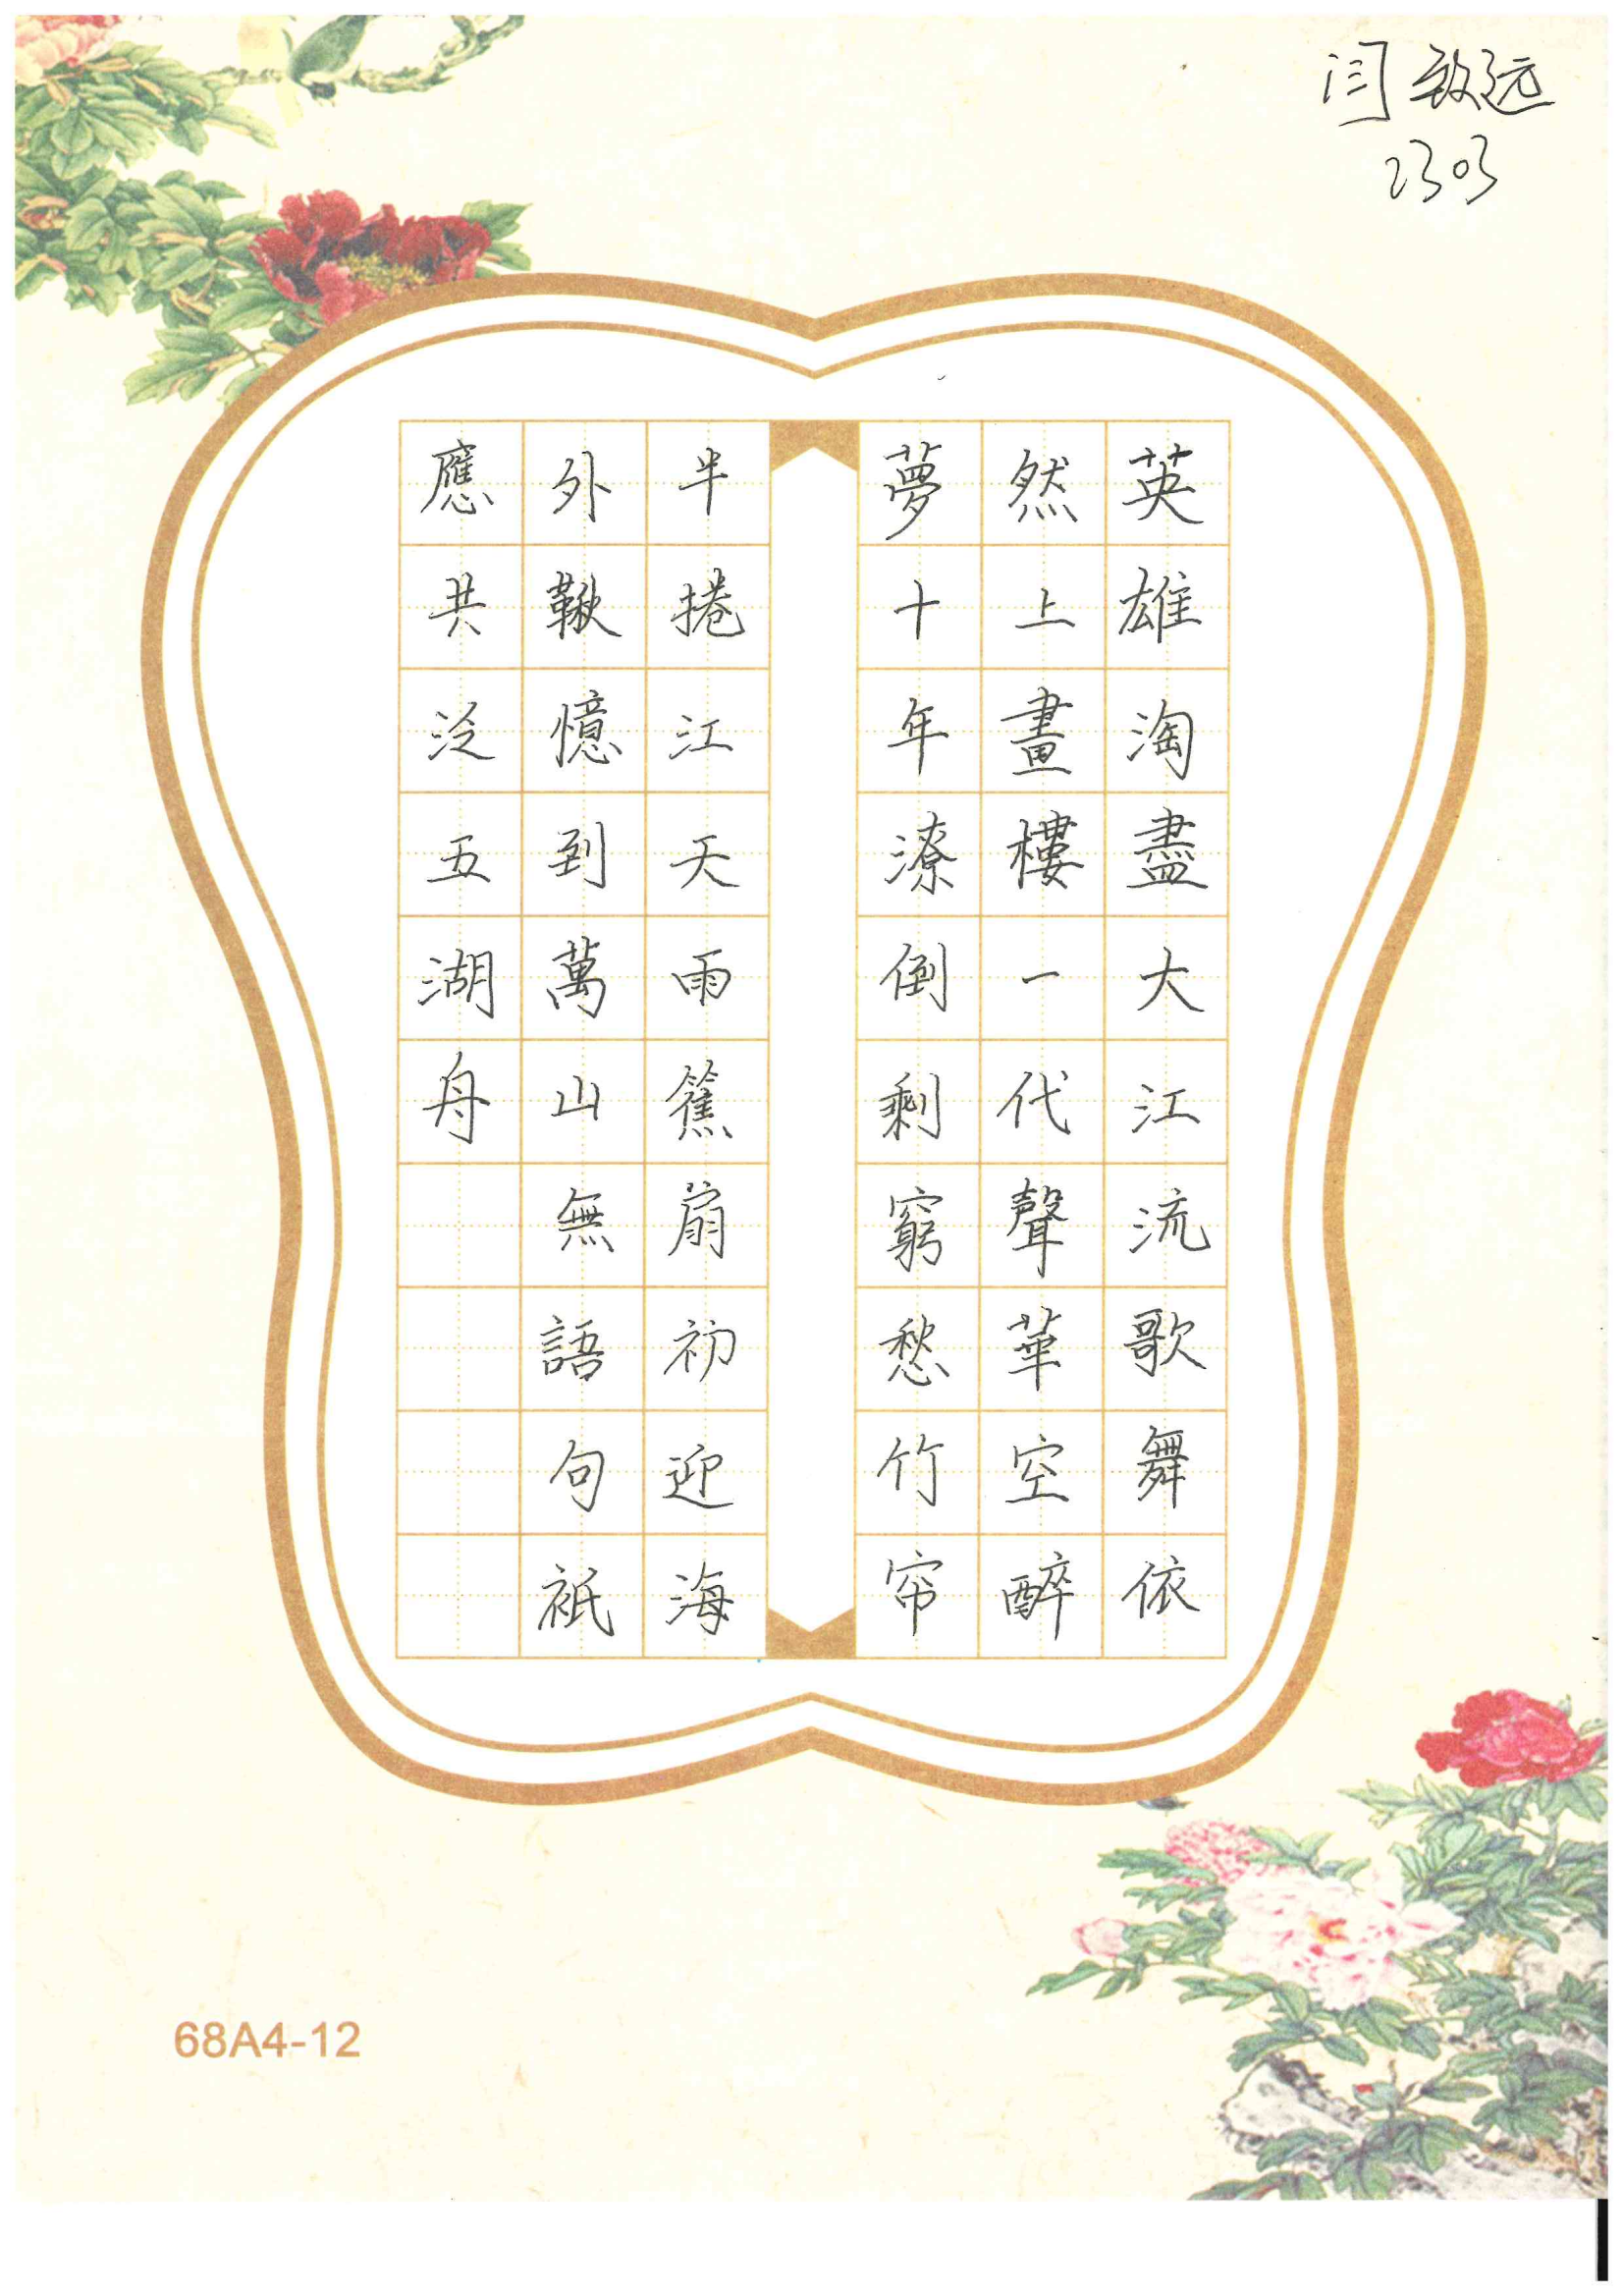 闫致远
2303
英雄淘盡大江流歌舞依
然上畫樓一代聲華空醉
夢十年潦倒剩窮愁竹帘
半捲江天雨篠扇初迎海
外鞦憶到萬山無語句祇
應共泛五湖舟
68A4-12